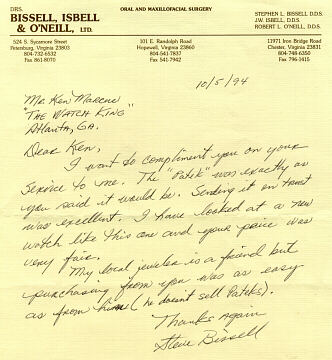 DRS.
BISSELL, ISBELL
& O'NEILL, LTD.
ORAL AND MAXILLOFACIAL SURGERY
STEPHEN L. BISSELL, D.D.S.
J.W. ISBELL, D.D.S.
ROBERT L. O'NEILL, D.D.S.
524 S. Sycamore Street
Petersburg, Virginia 23803
804-732-6532
Fax 861-8070
101 E. Randolph Road
Hopewell, Virginia 23860
804-541-7837
Fax 541-7942
11971 Iron Bridge Road
Chester, Virginia 23831
804-748-6350
Fax 796-1415
10/5/94
Mr. Ken
"The Watch King"
Atlanta, GA.
Dear Ken,
I want to compliment you on your
service to me. The "Patek" was exactly as
you said it would be. Sending it on trust
was excellent. I have looked at a new
watch like this one and your price was
very fair.
My local jeweler is a friend but
purchasing from you was as easy
as from him (he doesn't sell Pateks).
Thanks Again
Steve Bissell